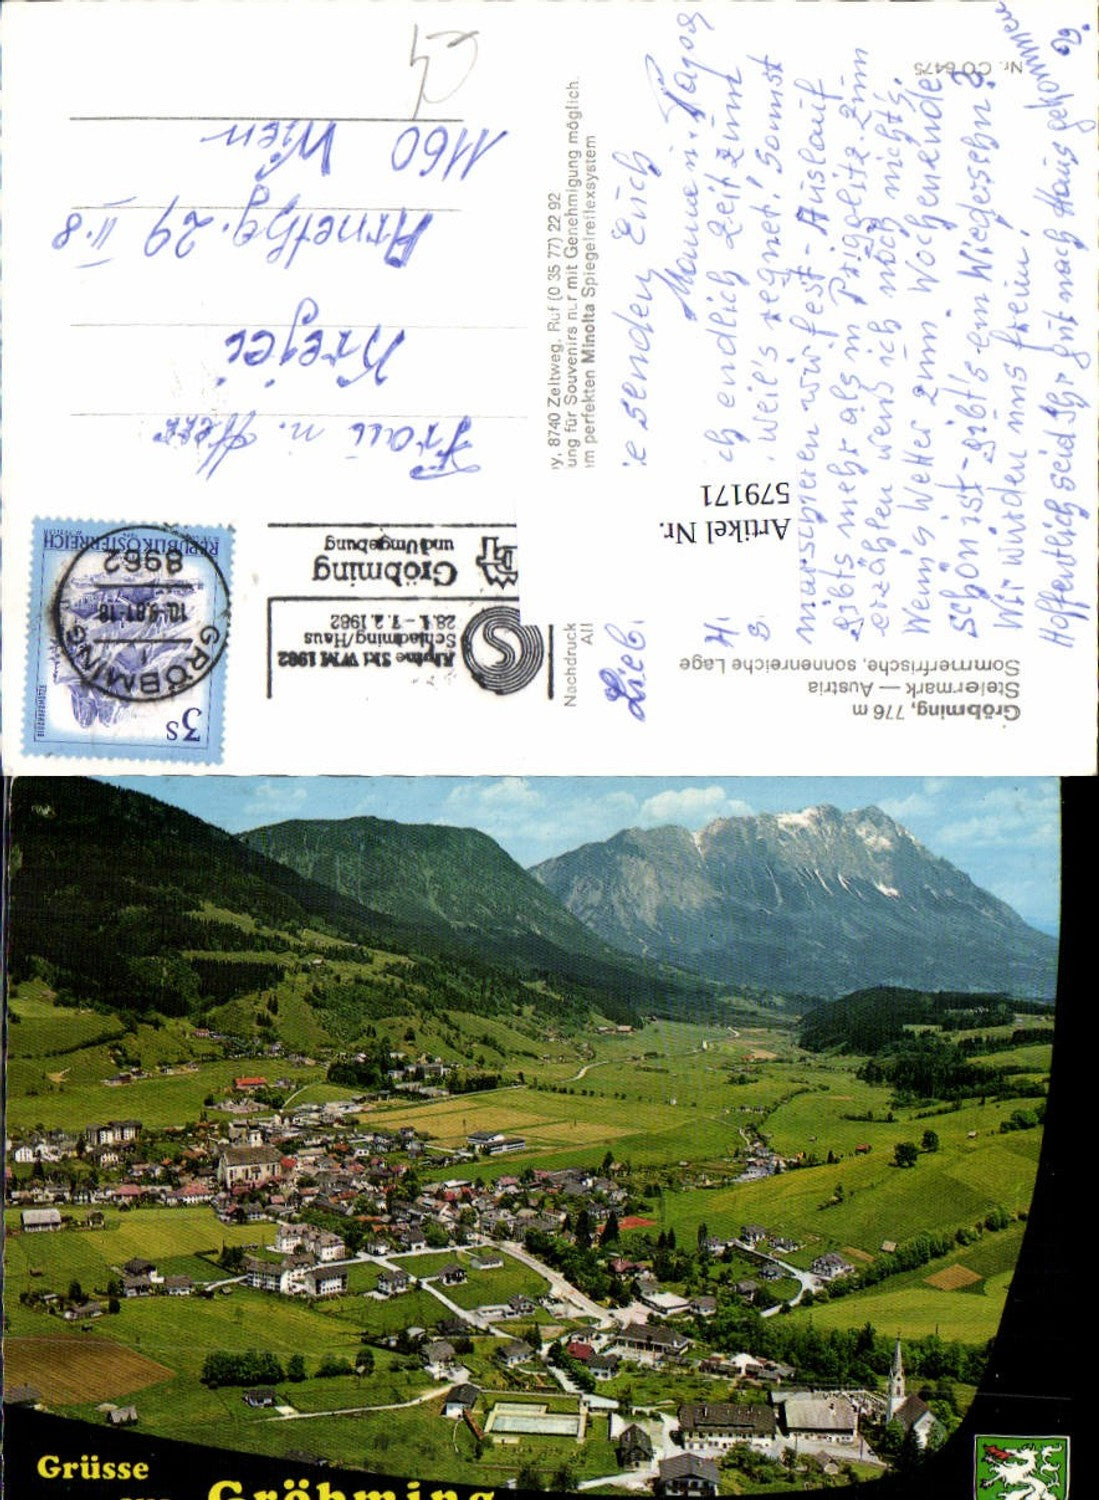 Gröbming, 776 m
Steiermark — Austria
Sommerfrische, sonnenreiche Lage
Nr. CO 6475
Lieb
e senden Euch
Mama n. Papa
H
ch endlich Zeit zum
S
weil's regnet! Sonst
marschieren wir fest - Auslauf
gibts mehr als in Prigglitz. Zum
erzählen werd ich noch nichts.
Wenn's Wetter zum Wochenende
schön ist - gibt's ein Wiedersehn?
Wir würden uns freun!
Hoffentlich seid Ihr gut nach Haus gekommen
Artikel Nr.
579171
Nachdruck
All
y, 8740 Zeltweg, Ruf (0 35 77) 22 92
ung für Souvenirs nur mit Genehmigung möglich.
m perfekten Minolta Spiegelreflexsystem
Alpine Ski WM 1982
Schladming/Haus
28.1. - 7.2.1982
Gröbming
und Umgebung
GRÖBMING
1
10.-9.81-18
8962
3S
REPUBLIK ÖSTERREICH
Frau u. Herr
Krejci
Arnethg. 29 II.8
1160 Wien
Grüsse
aus Gröbming